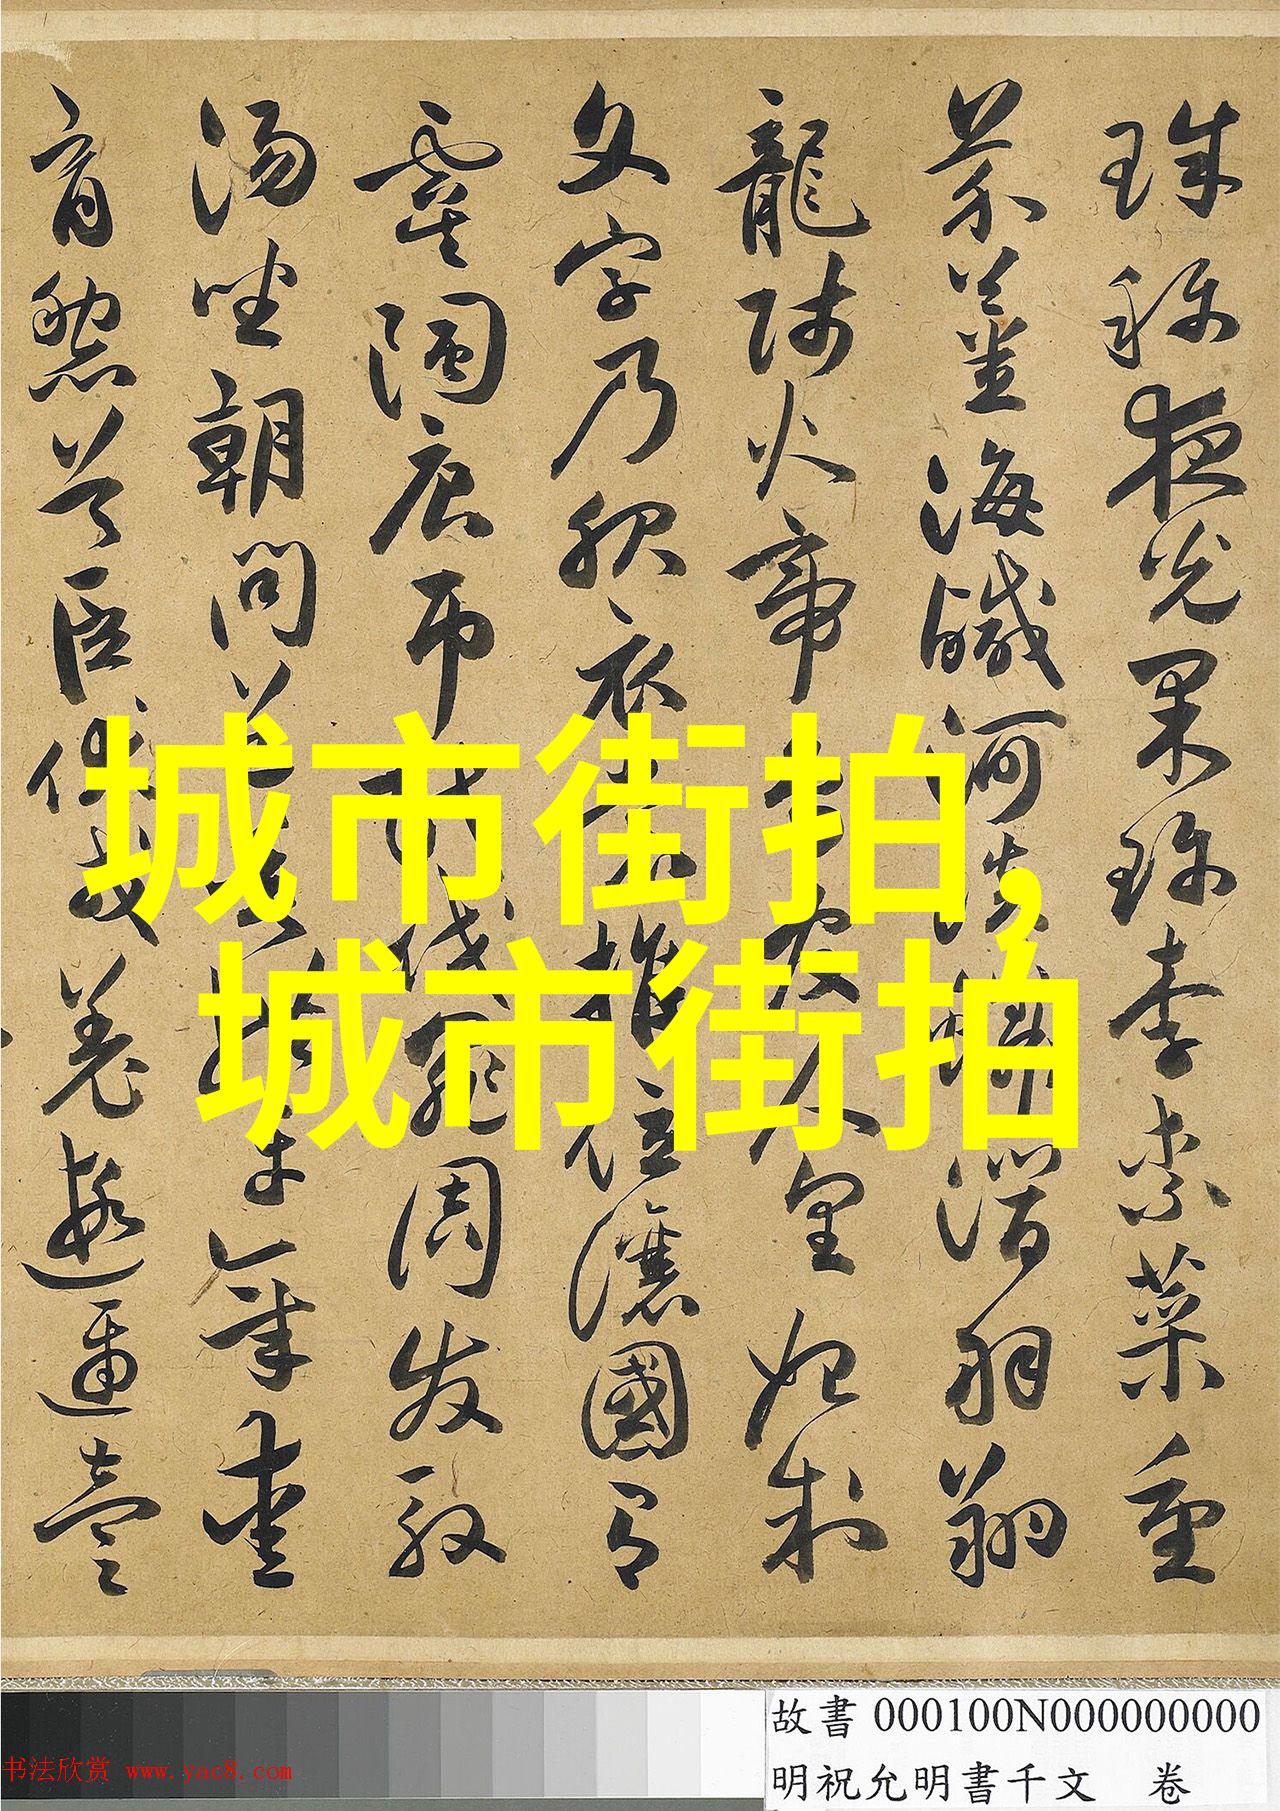 珠稱夜光果珍李柰菜重
芥薑海鹹河淡鱗潛羽翔
龍師火帝鳥官人皇始制
文字乃服衣裳推位讓國有
虞陶唐弔民伐罪周發殷
湯坐朝問道垂拱平章愛
育黎首臣伏戎羌遐邇壹
城市街拍,
城市街拍
故書 000100N000000000
明祝允明書千文 卷
书法欣赏 www.yac8.com